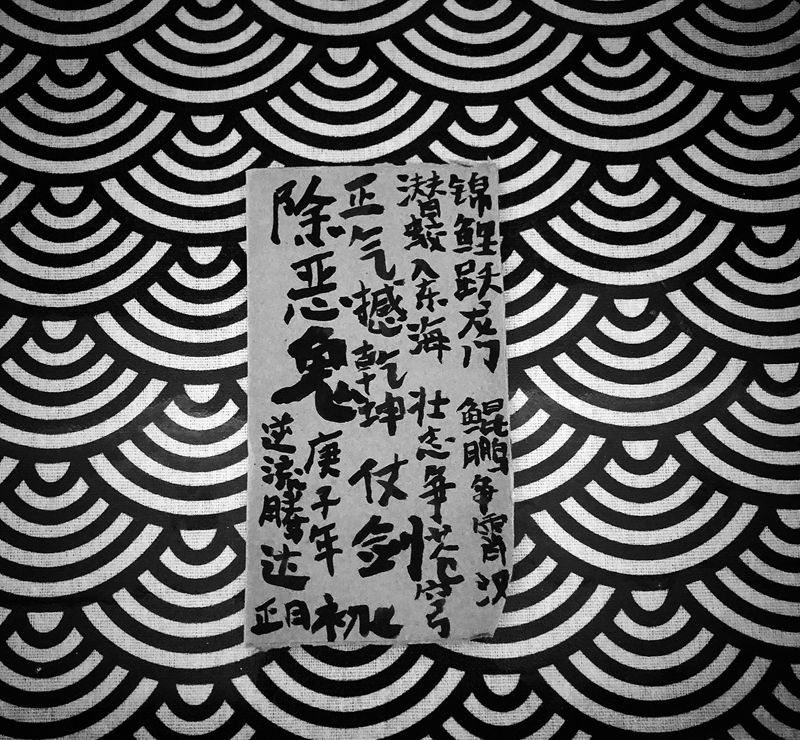 锦鲤跃龙门 鲲鹏争霄汉
潜蛟入东海 壮志争苍穹
正气撼乾坤 仗剑
除恶鬼
庚子年
逆流腾达
正月初七